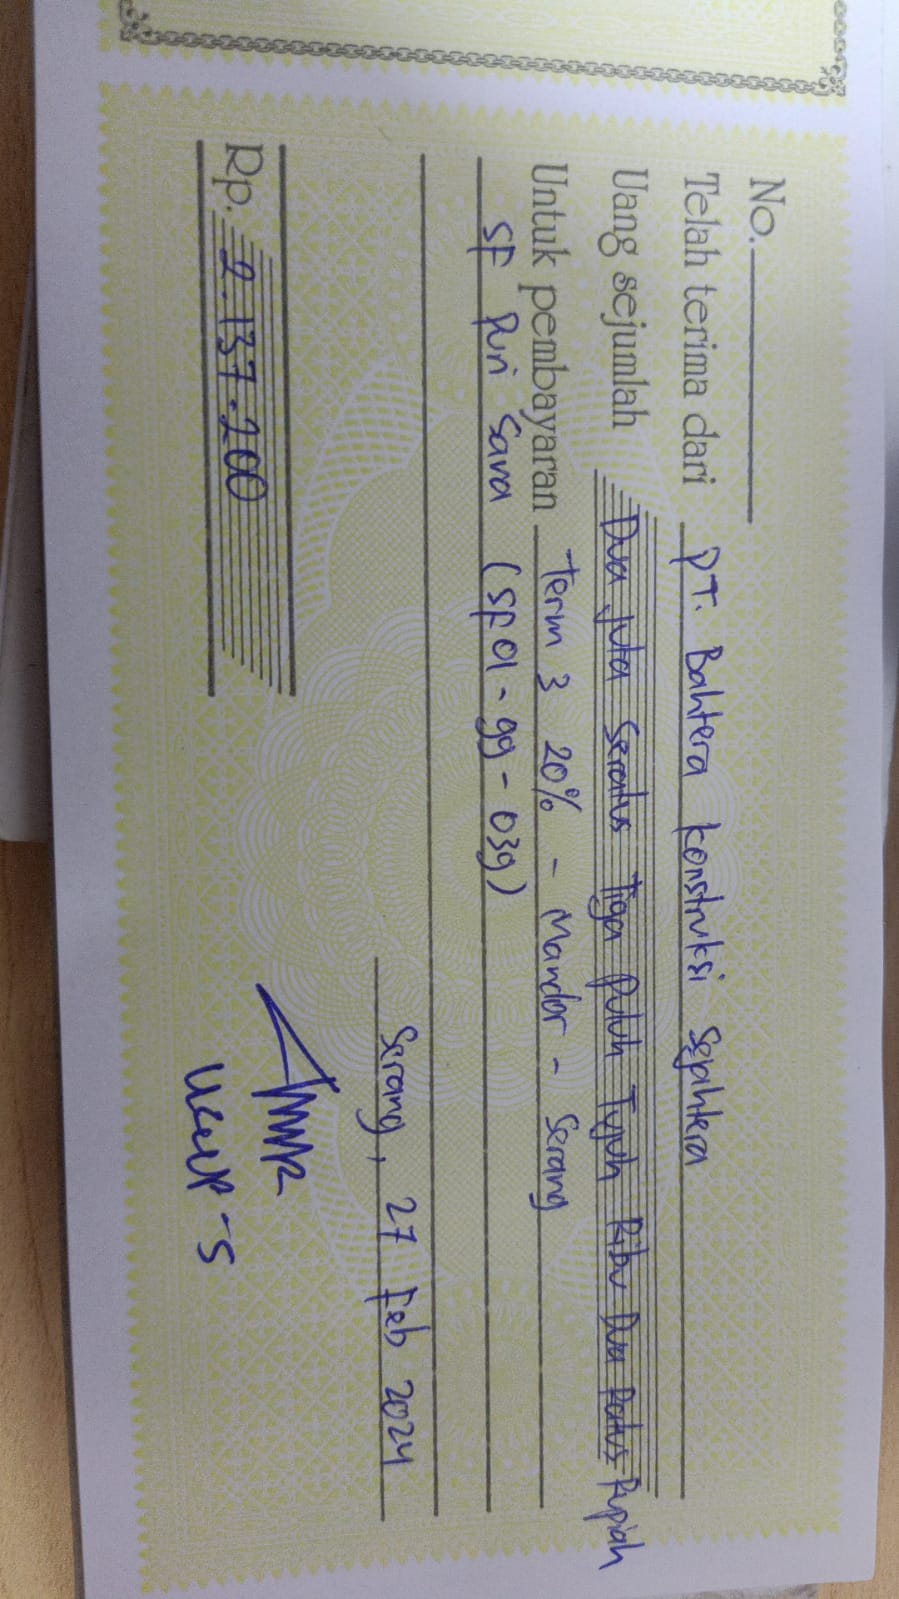 No.
Telah terima dari PT. Bahtera Konstruksi Sejahtera
Uang sejumlah Dua juta Seratus Tiga Puluh Tujuh Ribu Dua Ratus Rupiah
Untuk pembayaran Term 3 20% - Mandor - Serang
SF Puri Sava (SF01-99-039)
Serang, 27 Feb 2024
Rp. 2.137.200